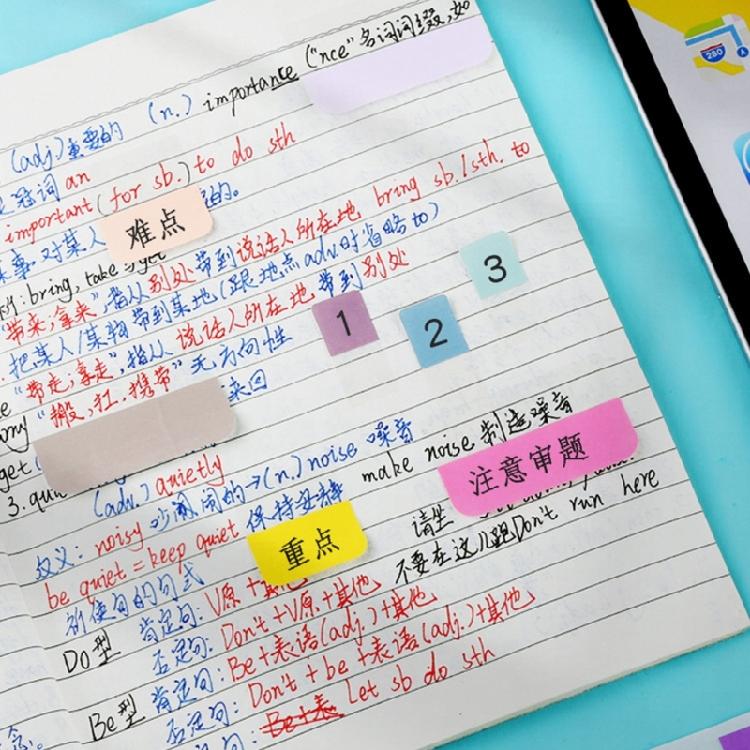 (n.) importance ("nce"名词词缀,如
(adj.)重要的
冠词 an
important (for sb.) to do sth
事 对某人 的。
难点
: bring, take与get
"带来;拿来",指从别处带到说话人所在地 bring sb./sth. to
把某人/某物带到某地(跟地点adv.时省略to)
"带走;拿走",指从说话人所在地带到别处
"搬,扛,携带"无方向性
get 来回
1
2
3
3. qui (adv.) quietly
反义: noisy 吵闹的→(n.) noise 噪音 make noise 制造噪音
注意审题
be quiet = keep quiet 保持安静
重点
请坐
祈使句的句式 不要在这儿跑Don't run here
Do型 肯定句: V原+其他
否定句: Don't+V原+其他
Be型 肯定句: Be+表语(adj.)+其他
否定句: Don't+be+表语(adj.)+其他
Be+表 Let sb do sth
280